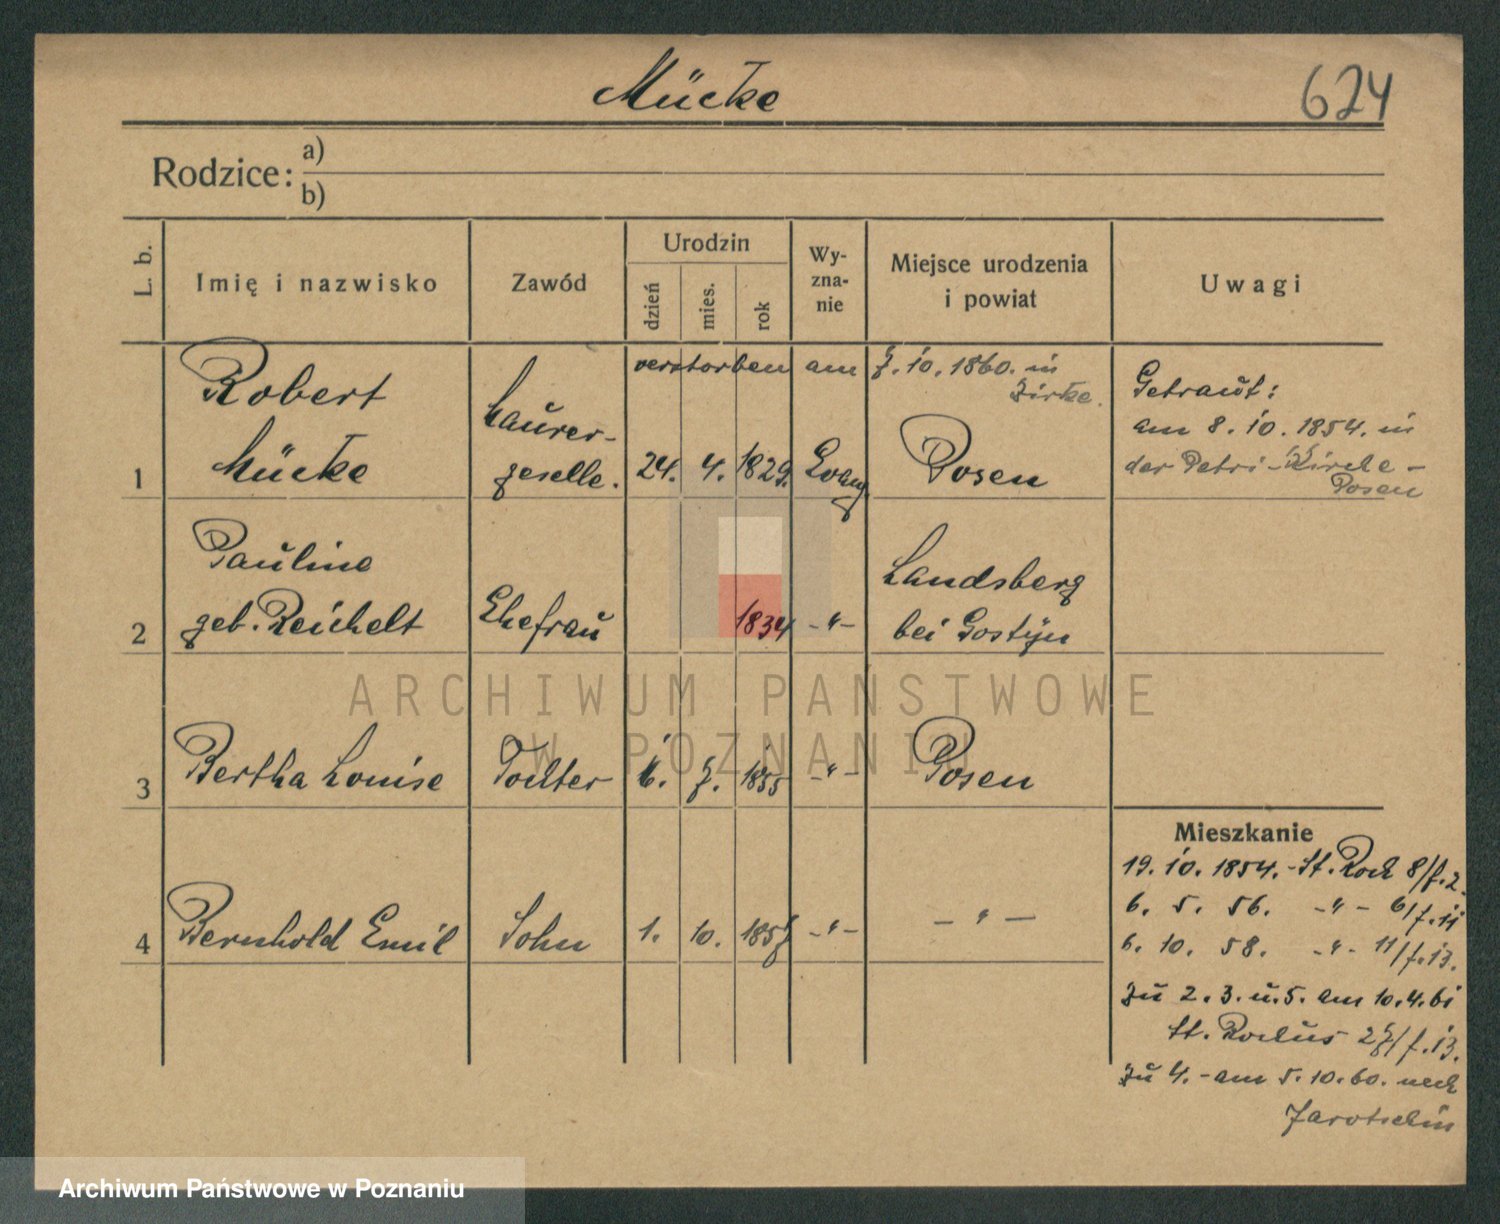 Mücke
624
Rodzice:
a)
b)
L. b.
Imię i nazwisko
Zawód
Urodzin
dzień
mies.
rok
Wy-
zna-
nie
Miejsce urodzenia
i powiat
Uwagi
verstorben am 7. 10. 1860. in
Zirke.
1
Robert
Mücke
Maurer-
geselle.
24. 4. 1829.
Evang
Posen
Getraut:
am 8. 10. 1854. in
der Petri-Kirche-
Posen
2
Pauline
geb. Reichelt
Ehefrau
1834
-"-
Landsberg
bei Gostyn
3
Bertha Louise
Tochter
7. 1855
-"-
Posen
4
Bernhold Emil
Sohn
1. 10. 1857
-"-
- " -
Mieszkanie
19. 10. 1854. - St. Roch 8/f. 2.
6. 5. 56. -"- 6/f. 11
6. 10. 58. -"- 11/f. 13.
Zu 2. 3. u. 5. am 10. 4. 61
St. Rochus 27/f. 13.
Zu 4. - am 5. 10. 60. nach
Jarotschin
ARCHIWUM PAŃSTWOWE
W POZNANIU
Archiwum Państwowe w Poznaniu